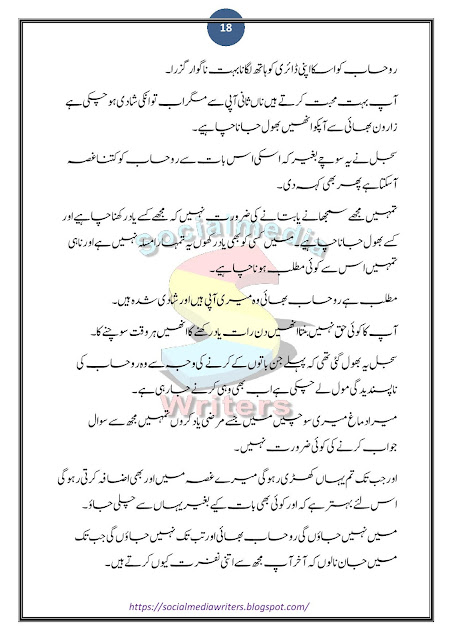 18
روحاب کو اسکا اپنی ڈائری کو ہاتھ لگانا بہت ناگوار گزرا۔
آپ بہت محبت کرتے ہیں ناں ثانی آپی سے مگر اب تو انکی شادی ہو چکی ہے
زارون بھائی سے آپکو انھیں بھول جانا چاہیے۔
سجل نے یہ سوچے بغیر کہ اسکی اس بات سے روحاب کو کتنا غصہ
آسکتا ہے پھر بھی کہہ دی۔
تمہیں مجھے سمجھانے یا بتانے کی ضرورت نہیں کہ مجھے کسے یاد رکھنا چاہیے اور
کسے بھول جانا چاہیے۔ میں کسی کو بھی یاد رکھوں یہ تمہارا مسئلہ نہیں ہے اور نا ہی
تمہیں اس سے کوئی مطلب ہونا چاہیے۔
مطلب ہے روحاب بھائی وہ میری آپی ہیں اور شادی شدہ ہیں۔
آپ کا کوئی حق نہیں بنتا انھیں دن رات یاد رکھنے کا انھیں ہر وقت سوچنے کا۔
سجل یہ بھول گئی تھی کہ پہلے جن باتوں کے کرنے کی وجہ سے وہ روحاب کی
ناپسندیدگی مول لے چکی ہے اب بھی وہی کرنے جا رہی ہے۔
میرا دماغ میری سوچیں میں جسے مرضی یاد کروں تمہیں مجھ سے سوال
جواب کرنے کی کوئی ضرورت نہیں۔
اور جب تک تم یہاں کھڑی رہو گی میرے غصہ میں اور بھی اضافہ کرتی رہو گی
اس لئے بہتر ہے کہ اور کوئی بھی بات کیے بغیر یہاں سے چلی جاؤ۔
میں نہیں جاؤں گی روحاب بھائی اور تب تک نہیں جاؤں گی جب تک
میں جان نا لوں کہ آخر آپ مجھ سے اتنی نفرت کیوں کرتے ہیں۔
Socialmedia
S
Writers
https://socialmediawriters.blogspot.com/